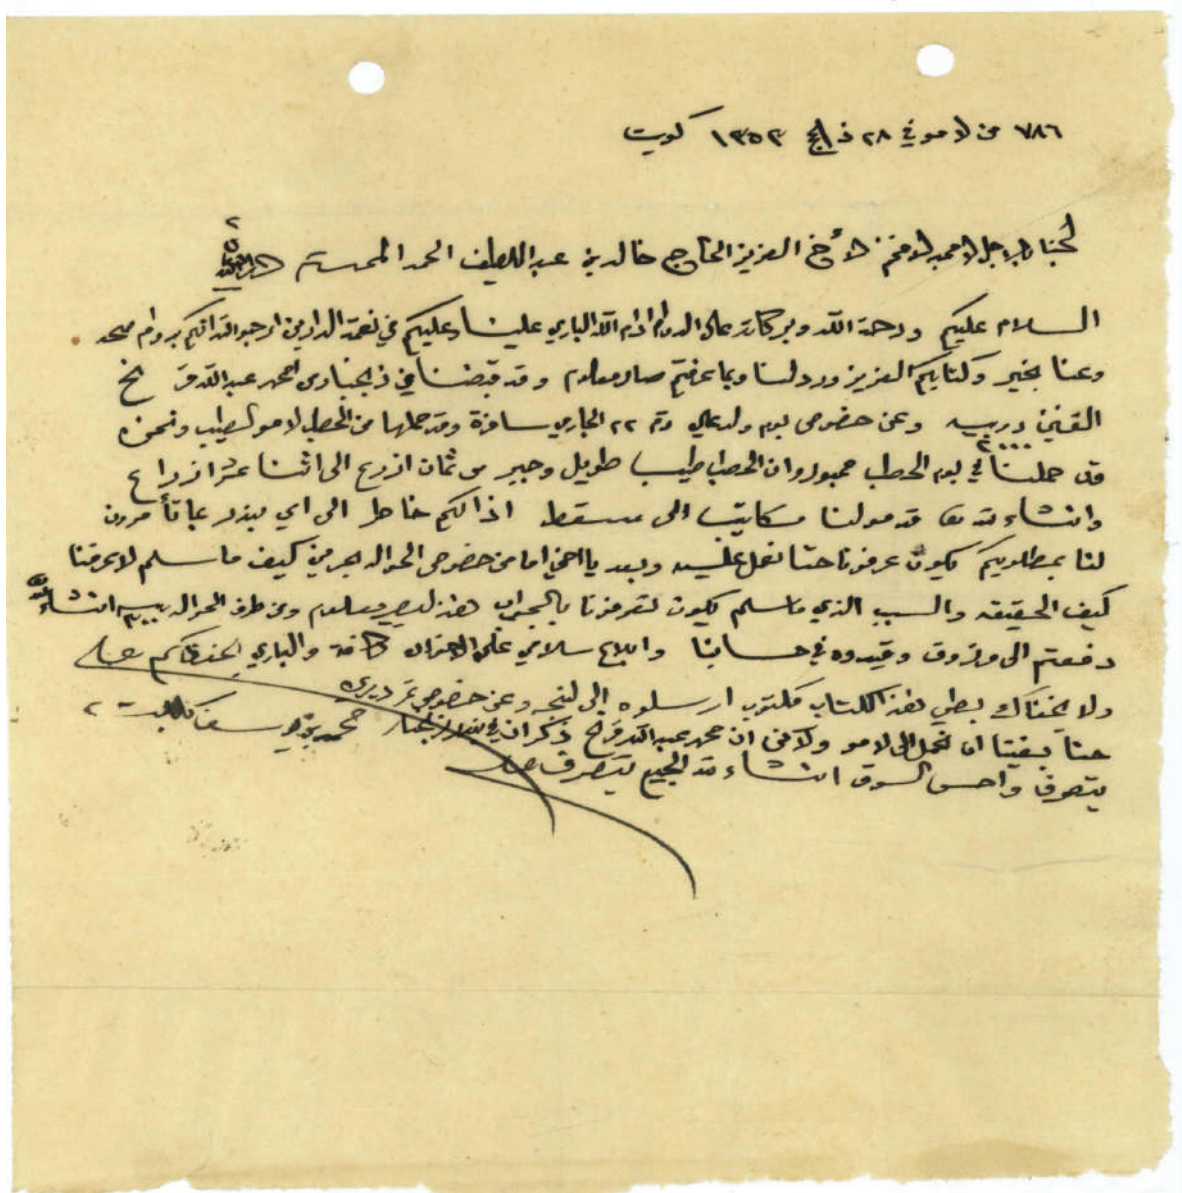 ٧٨٦ من لامو في ٢٨ ذ الحج ١٣٥٣ كويت
لجناب الاجل الامجد الافخم الأخ العزيز الحاج خالد بن عبد اللطيف الحمد المحترم
السلام عليكم ورحمة الله وبركاته على الدوام ادام الله الباري علينا وعليكم في نعمة الدارين ارجو الله انكم بدوام صحه
وعنا بخير وكتابكم العزيز ورد لنا وبما عرفتم صار معلوم وقد قبضنا في محمد عبد الله فرخ
القنين ربيه ٢٠٠٠ وعن خصوص بوم ولد علي رقم ٢٢ الجاري سافرة وقد حملها من الحطب لامو الطيب ونحن
قد حملنا في بوم الحطب وان الحطب طيب طويل من ثمان ازرع الى اثنا عشر ازراع
وانشاء لله قد مولنا مكاتيب الى مسقط اذا لكم خاطر الى اي بندر
لنا بمطلوبكم يكون عرفونا حتا نعل عليه وبعد يا اخي اما من خصوص الحواله كيف ما سلم لا عرفنا
كيف الحقيقه والسبب الذي ما سلم يكون تعرفونا بالجواب هذا ليصير معلوم ومن طرف الحواله ربيه ٣٠٠ انشاء الله
دفعتم الى مرزوق وقيدوه في حسابنا وابلاغ سلامي على الاخوان كافة والباري يحفظكم
ولا يخفاك بطي هذا الكتاب مكتوب ارسلوه الى لنجه وعن خصوص
حنا بغينا ان نحمل الى لامو ولاكن ان محمد عبد الله فرخ ذكر ان في محمد بن يوسف
يتصرف واحسن السوق انشاء لله الجميع يتصرف